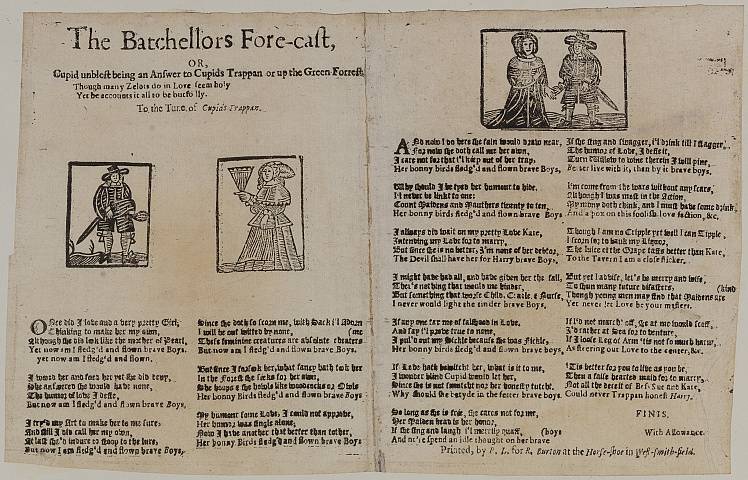 The Batchellors Fore-cast,
OR,
Cupid unblest being an Answer to Cupids Trappan or up the Green Forrest
Though many Zelots do in Love seem holy
Yet he accounts it all to be but folly.
To the Tune of Cupids Trappan.
ONce did I love and a very pretty Girl,
Thinking to make her my own,
Although she did look like the mother of Pearl,
Yet now am I fledg'd and flown brave Boys,
yet now am I fledg'd and flown.
I wooed her and sued her yet she did deny,
She answered she would have none,
The humor of Love I defie,
But now am I fledg'd and flown brave Boys,
I try'd my Art to make her to me sure:
And still I did call her my own,
At last she'd indure to stoop to the lure,
But now I am fledg'd and flown brave Boys,
Since she doth so scorn me, with Sack i'l adorn
I will be out witted by none, (me
These feminine creatures are absolute cheaters
But now I am fledg'd and flown brave Boys.
But since I forsook her, what fancy hath took her
In the Forest she seeks for her own,
She hoops & she howls like woodcocks or Owls
Her bonny Birds fledg'd and flown brave Boys
My humour some Love, I could not approve,
Her honor was single alone;
Now I have another that better than tother,
Her bonny Birds fledg'd and flown brave Boys.
ANd now I do hera she fain would draw near,
For now she doth call me her own,
I care not for that i'l keep out of her trap,
Her bonny birds fledg'd and flown brave Boys,
Why should I be tyed her humour to bide,
I'l never be linkt to one:
Count Maidens and Mauthers twenty to ten,
Her bonny birds fledg'd and flown brave Boys
I always did wait on my pretty Love Kate,
Intending my Love for to marry,
But since she is no better, I'm none of her debtor,
The Devil shall have her for Harry brave Boys,
I might have had all, and have given her the fall,
Ther's nothing that would me hinder,
But something that worse Child, Cradle, & Nurse,
I never would light the tinder brave Boys,
If any one tax me of falshood in Love.
And say i'l prove true to none,
I pul'd out my Pickle because she was Fickle,
Her bonny birds fledg'd and flown brave boys,
If Lads hath bewitcht her, what is it to me,
I wonder blind Cupid would let her,
Since she is not constant nor her honesty tutcht.
Why should she betyde in the fetter brave boys.
So long as she is free, she cares not for me,
Her Maiden head is her honor,
If she sing and laugh i'l merrily quaff, (boys
And ne're spend an idle thought on her brave
If she sing and swagger, i'l drink till I stagger,
The humor of Love, I defie it,
Turn Willow to wine therein I will pine,
Better live with it, then by it brave boys,
I'm come from the wars without any scars,
Although I was most in the Action,
My mony doth chink, and I must have some drink,
And a pox on this foolish love faction, &c.
Though I am no Cripple yet well I can Tipple,
I scorn for to bauk my Liquor,
The Juice of the Grape tasts better than Kate,
To the Tavern I am a close sticker.
But yet I advise, let's be merry and wise,
To shun many future disasters, (kind
Though young men may find that Maidens are
Yet never let Love be your masters.
If I'd not march'd off, she at me would scoff,
I'd rather at Sea for to venture,
If I loose Leg or Arm 'tis not so much harm,
As steering our Love to the center, &c.
'Tis better for you to live as you be,
Then a false hearted maid for to marry,
Not all the deceit of Bess Sue and Kate,
Could never Trappan honest Harry.
FINIS.
With Allowance.
Printed, by P. L. for R. Burton at the Horse-shoe in West-smith-field.